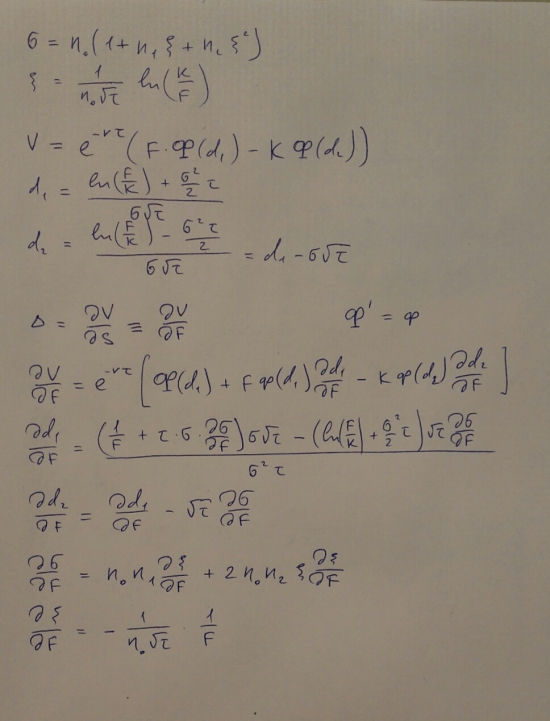 σ = n₀(1 + n₁ξ + n₂ξ²)
ξ = 1/(n₀√τ) ln(K/F)
V = e^(-rτ)(F·Φ(d₁) − KΦ(d₂))
d₁ = (ln(F/K) + σ²/2 τ)/(σ√τ)
d₂ = (ln(F/K) − σ²τ/2)/(σ√τ) = d₁ − σ√τ
Δ = ∂V/∂S ≡ ∂V/∂F Φ' = φ
∂V/∂F = e^(-rτ)[Φ(d₁) + Fφ(d₁)∂d₁/∂F − Kφ(d₂)∂d₂/∂F]
∂d₁/∂F = ((1/F + τ·σ·∂σ/∂F)σ√τ − (ln(F/K) + σ²/2 τ)√τ ∂σ/∂F)/(σ²τ)
∂d₂/∂F = ∂d₁/∂F − √τ ∂σ/∂F
∂σ/∂F = n₀n₁ ∂ξ/∂F + 2n₀n₂ξ ∂ξ/∂F
∂ξ/∂F = − 1/(n₀√τ) · 1/F